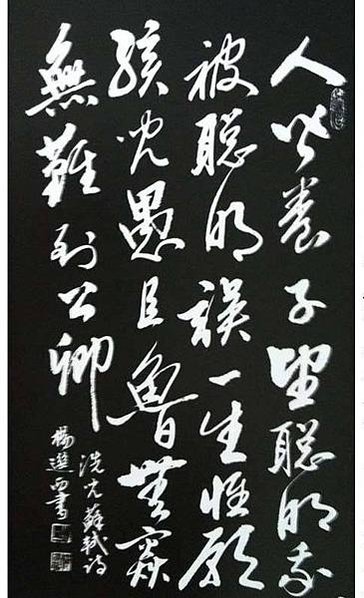 人皆養子望聪明我
被聪明誤一生惟願
孩兒愚且魯無灾
無難到公卿
洗兒蘇軾詩
楊選西書